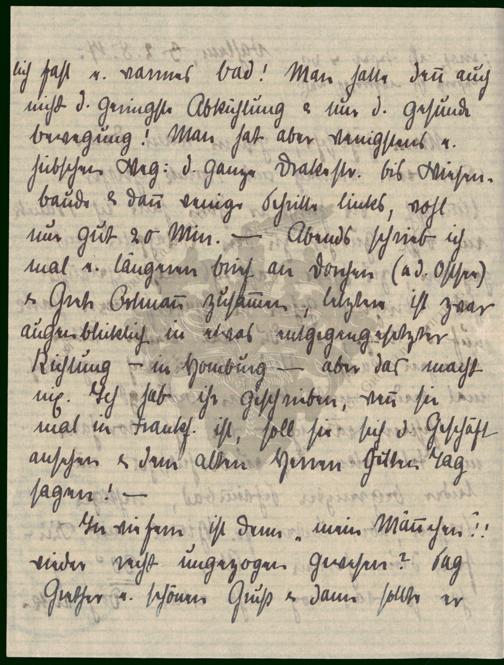 lich fast e. warmes Bad! Man hatte den̄ auch
nicht d. geringste Abkühlung & nur d. gesunde
Bewegung! Man hat aber wenigstens e.
hübschen Weg: d. ganze Drakestr. bis Wiesen-
baude & dan̄ wenige Schritte links, wohl
nur gut 20 Min. — Abends schrieb ich
mal e. längeren Brief an Dorchen (a.d. Ostsee)
& Grete Ostman̄ zusammen, letztere ist zwar
augenblicklich in etwas entgegengesetzter
Richtung — in Homburg — aber das macht
nix. Ich hab ihr geschrieben, wen̄ sie
mal in Frankf. ist, soll sie sich d. Geschäft
ansehen & dem alten Herren Guten Tag
sagen! —
In wiefern ist denn „mein Män̄chen"!!
wieder recht ungezogen gewesen? Sag
Günther e. schönen Gruß & dann sollte er